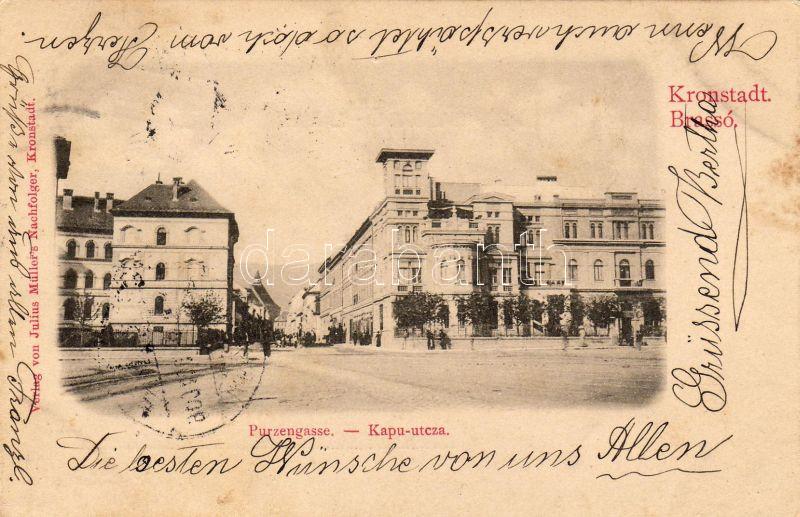 Wenn auch verspätet so doch vom
Herzen.
Kronstadt.
Brassó.
Grüssend Bertha
Verlag von Julius Müller's Nachfolger, Kronstadt.
darabanth
Purzengasse. — Kapu-utcza.
Die besten Wünsche von uns Allen